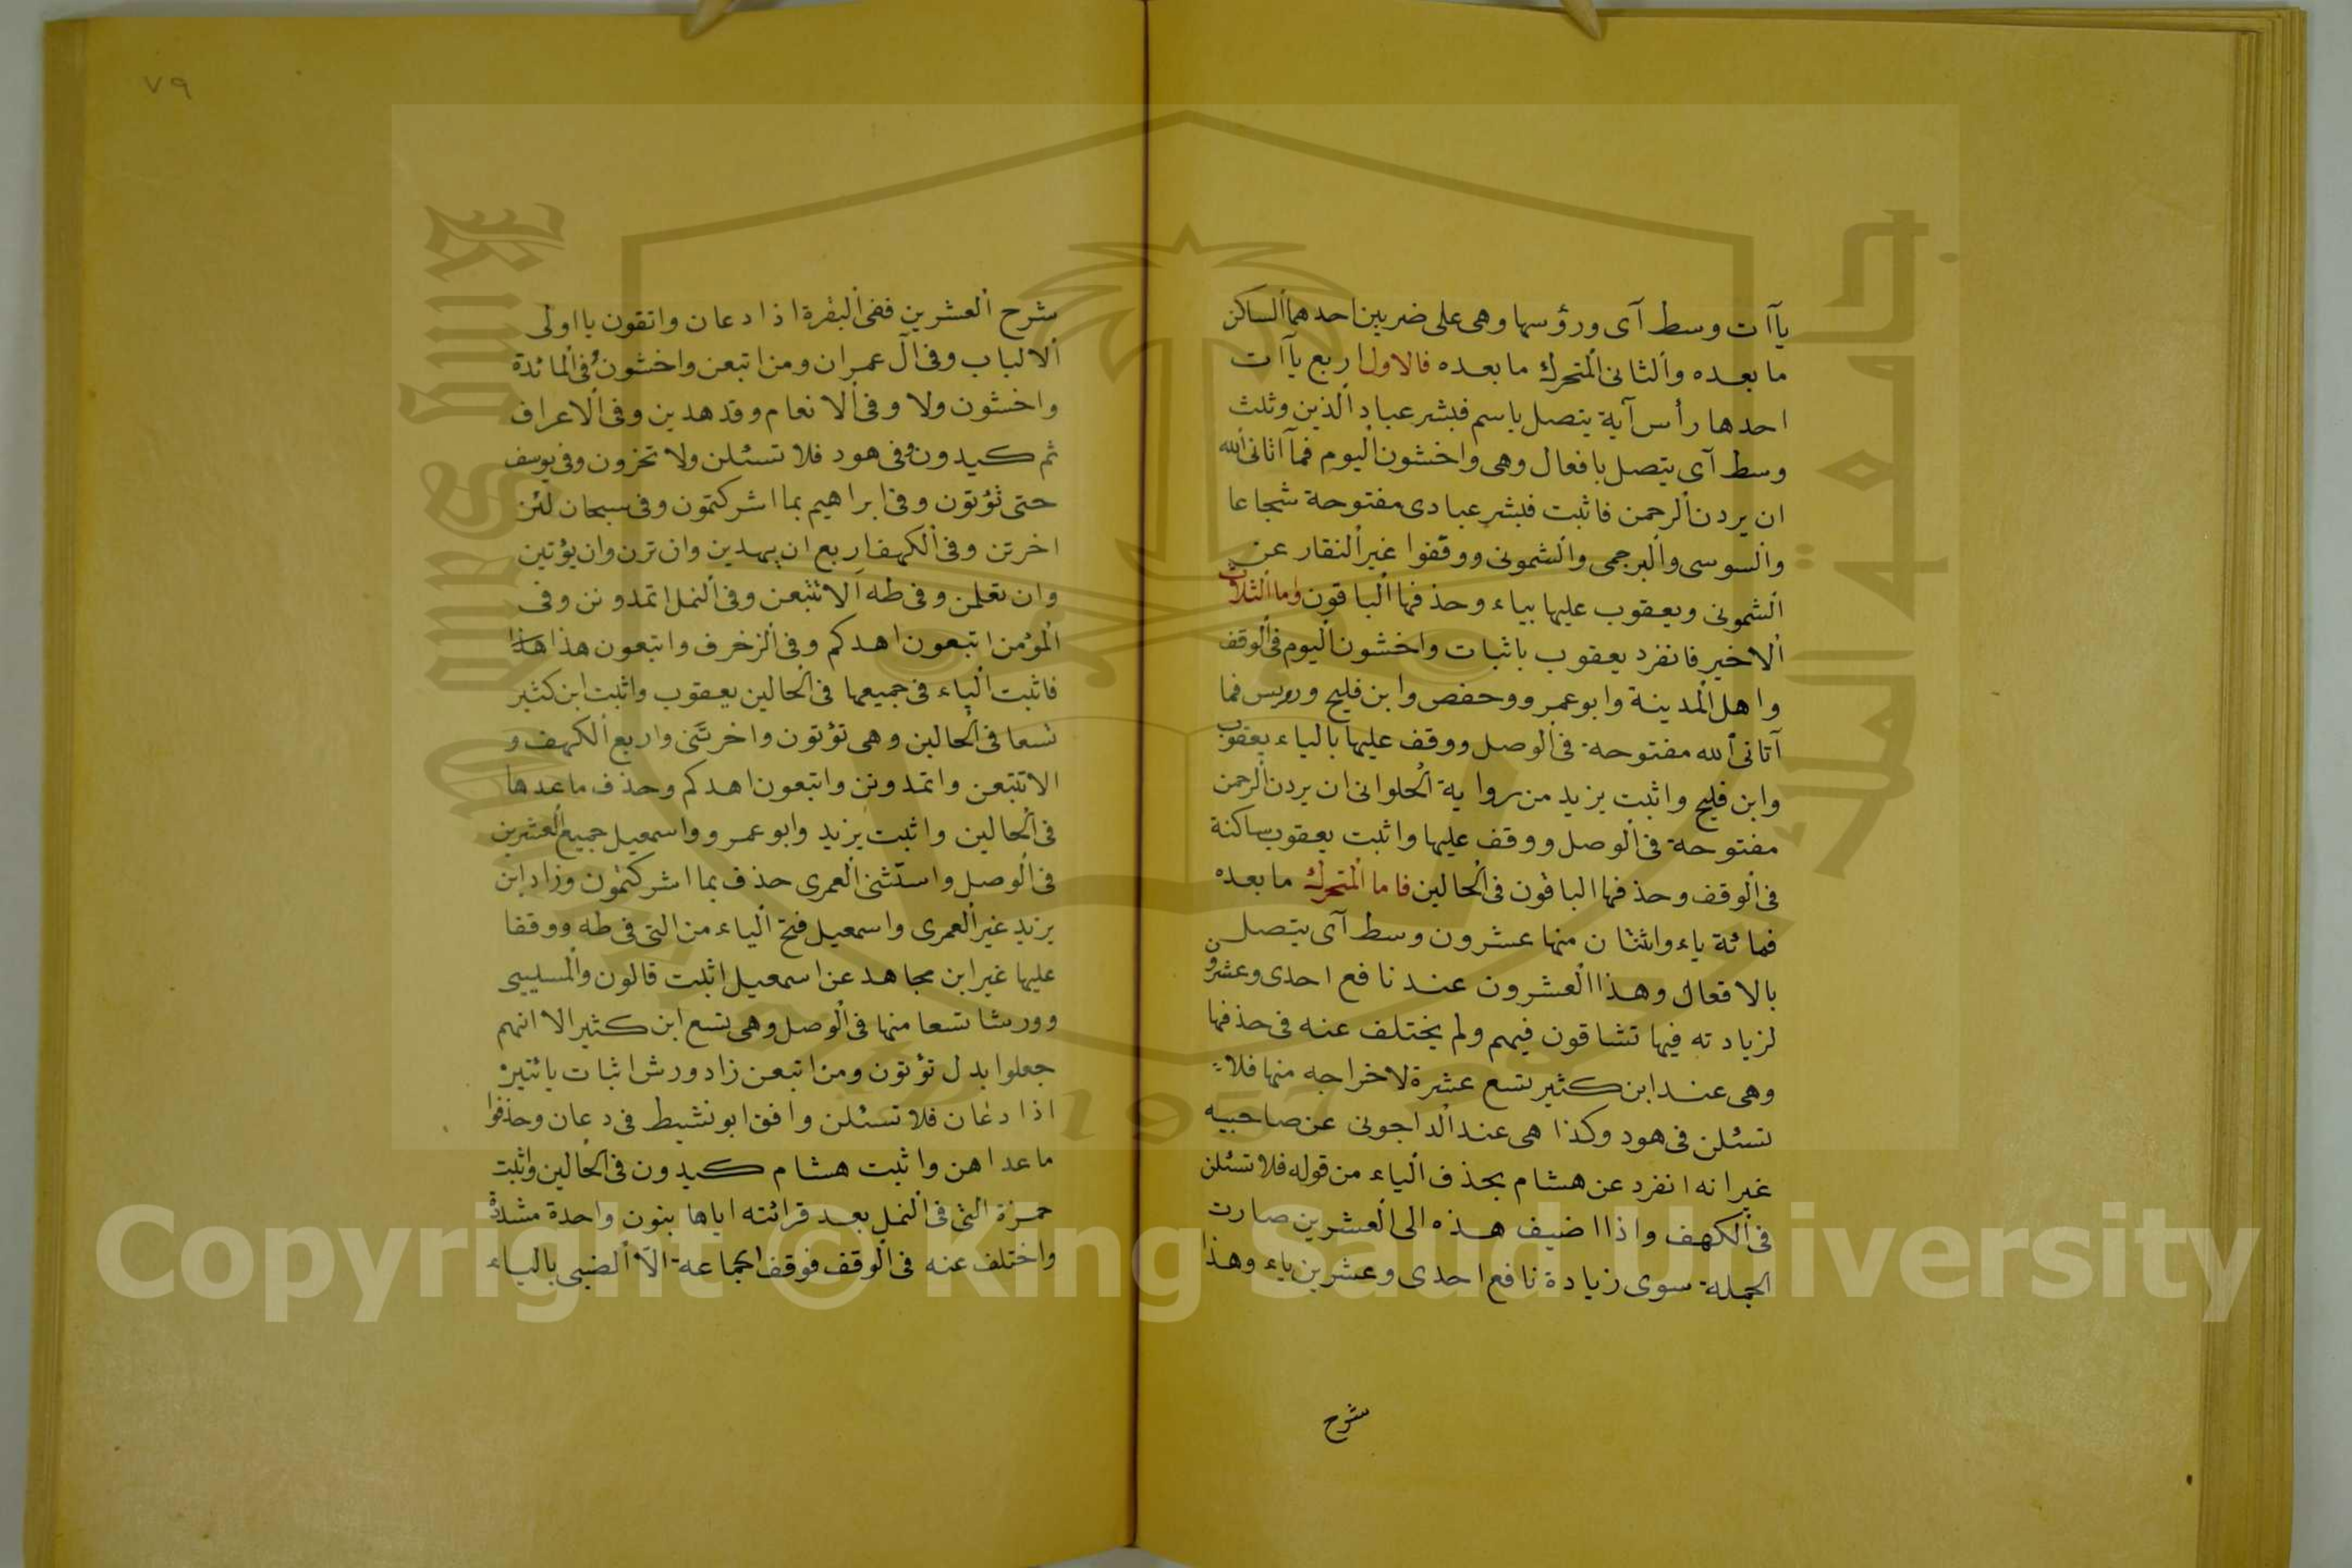 يآآت وسط آى ورؤسها وهى على ضربين احدهما الساكن
ما بعده والثانى المتحرك ما بعده فالاول اربع يآآت
احدها رأس آية يتصل باسم فبشر عباد الذين وثلث
وسط آى يتصل بافعال وهى واخشون اليوم فمآ اتانى الله
ان يردن الرحمن فاثبت فبشر عبادى مفتوحة شجاعا
والسوسى والبرجمى والشمونى ووقفوا غير النقار عن
الشمونى ويعقوب عليها بياء وحذفها الباقون واما الثلاث
الاخير فانفرد يعقوب باثبات واخشون اليوم فى الوقف
واهل المدينة وابو عمرو وحفص وابن فليح ورويس فما
آتانى الله مفتوحة فى الوصل ووقف عليها بالياء يعقوب
وابن فليح واثبت يزيد من رواية الحلوانى ان يردن الرحمن
مفتوحة فى الوصل ووقف عليها واثبت يعقوب ساكنة
فى الوقف وحذفها الباقون فى الحالين فاما المتحرك ما بعده
فمائة ياء واثنتان منها عشرون وسط آى يتصل
بالافعال وهذا العشرون عند نافع احدى وعشرون
لزيادته فيها تشاقون فيهم ولم يختلف عنه فى حذفها
وهى عند ابن كثير تسع عشرة لاخراجه منها فلا
تسئلن فى هود وكذا هى عند الداجونى عن صاحبيه
غير انه انفرد عن هشام بحذف الياء من قوله فلا تسئلن
فى الكهف واذا اضيف هذه الى العشرين صارت
الجملة سوى زيادة نافع احدى وعشرين ياء وهذا
شرح
٧٩
شرح العشرين ففى البقرة اذا دعان واتقون يا اولى
الالباب وفى آل عمران ومن اتبعن واخشون فى المائدة
واخشون ولا وفى الانعام وقد هدين وفى الاعراف
ثم كيدون وفى هود فلا تسئلن ولا تخزون وفى يوسف
حتى تؤتون وفى ابراهيم بما اشركتمون وفى سبحان لئن
اخرتن وفى الكهف اربع ان يهدين وان ترن وان يؤتين
وان تعلمن وفى طه الا تتبعن وفى النمل اتمدونن وفى
المؤمن اتبعون اهدكم وفى الزخرف واتبعون هذا هذا
فاثبت الياء فى جميعها فى الحالين يعقوب واثبت ابن كثير
تسعا فى الحالين وهى تؤتون واخرتنى واربع الكهف و
الا تتبعن واتمدونن واتبعون اهدكم وحذف ما عدها
فى الحالين واثبت يزيد وابو عمرو واسمعيل جميع العشرين
فى الوصل واستثنى العمرى حذف بما اشركتمون وزاد ابن
يزيد غير العمرى واسمعيل فتح الياء من التى فى طه ووقفا
عليها غير ابن مجاهد عن اسمعيل اثبت قالون والمسليبى
وورشا تسعا منها فى الوصل وهى تسع ابن كثير الا انهم
جعلوا بدل تؤتون ومن اتبعن زاد ورش اثبات يائتين
اذا دعان فلا تسئلن وافق ابو نشيط فى دعان وحذفوا
ما عداهن واثبت هشام كيدون فى الحالين واثبت
حمزة التى فى النمل بعد قرائته اياها بنون واحدة مشددة
واختلف عنه فى الوقف فوقف الجماعة الا الضبى بالياء
جامعة الملك سعود
King Saud University
1957
Copyright © King Saud University